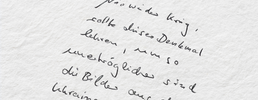 nie wieder Krieg,
sollte dieses Denkmal
lehren, um so
unerträglicher sind
die Bilder aus der
Ukraine